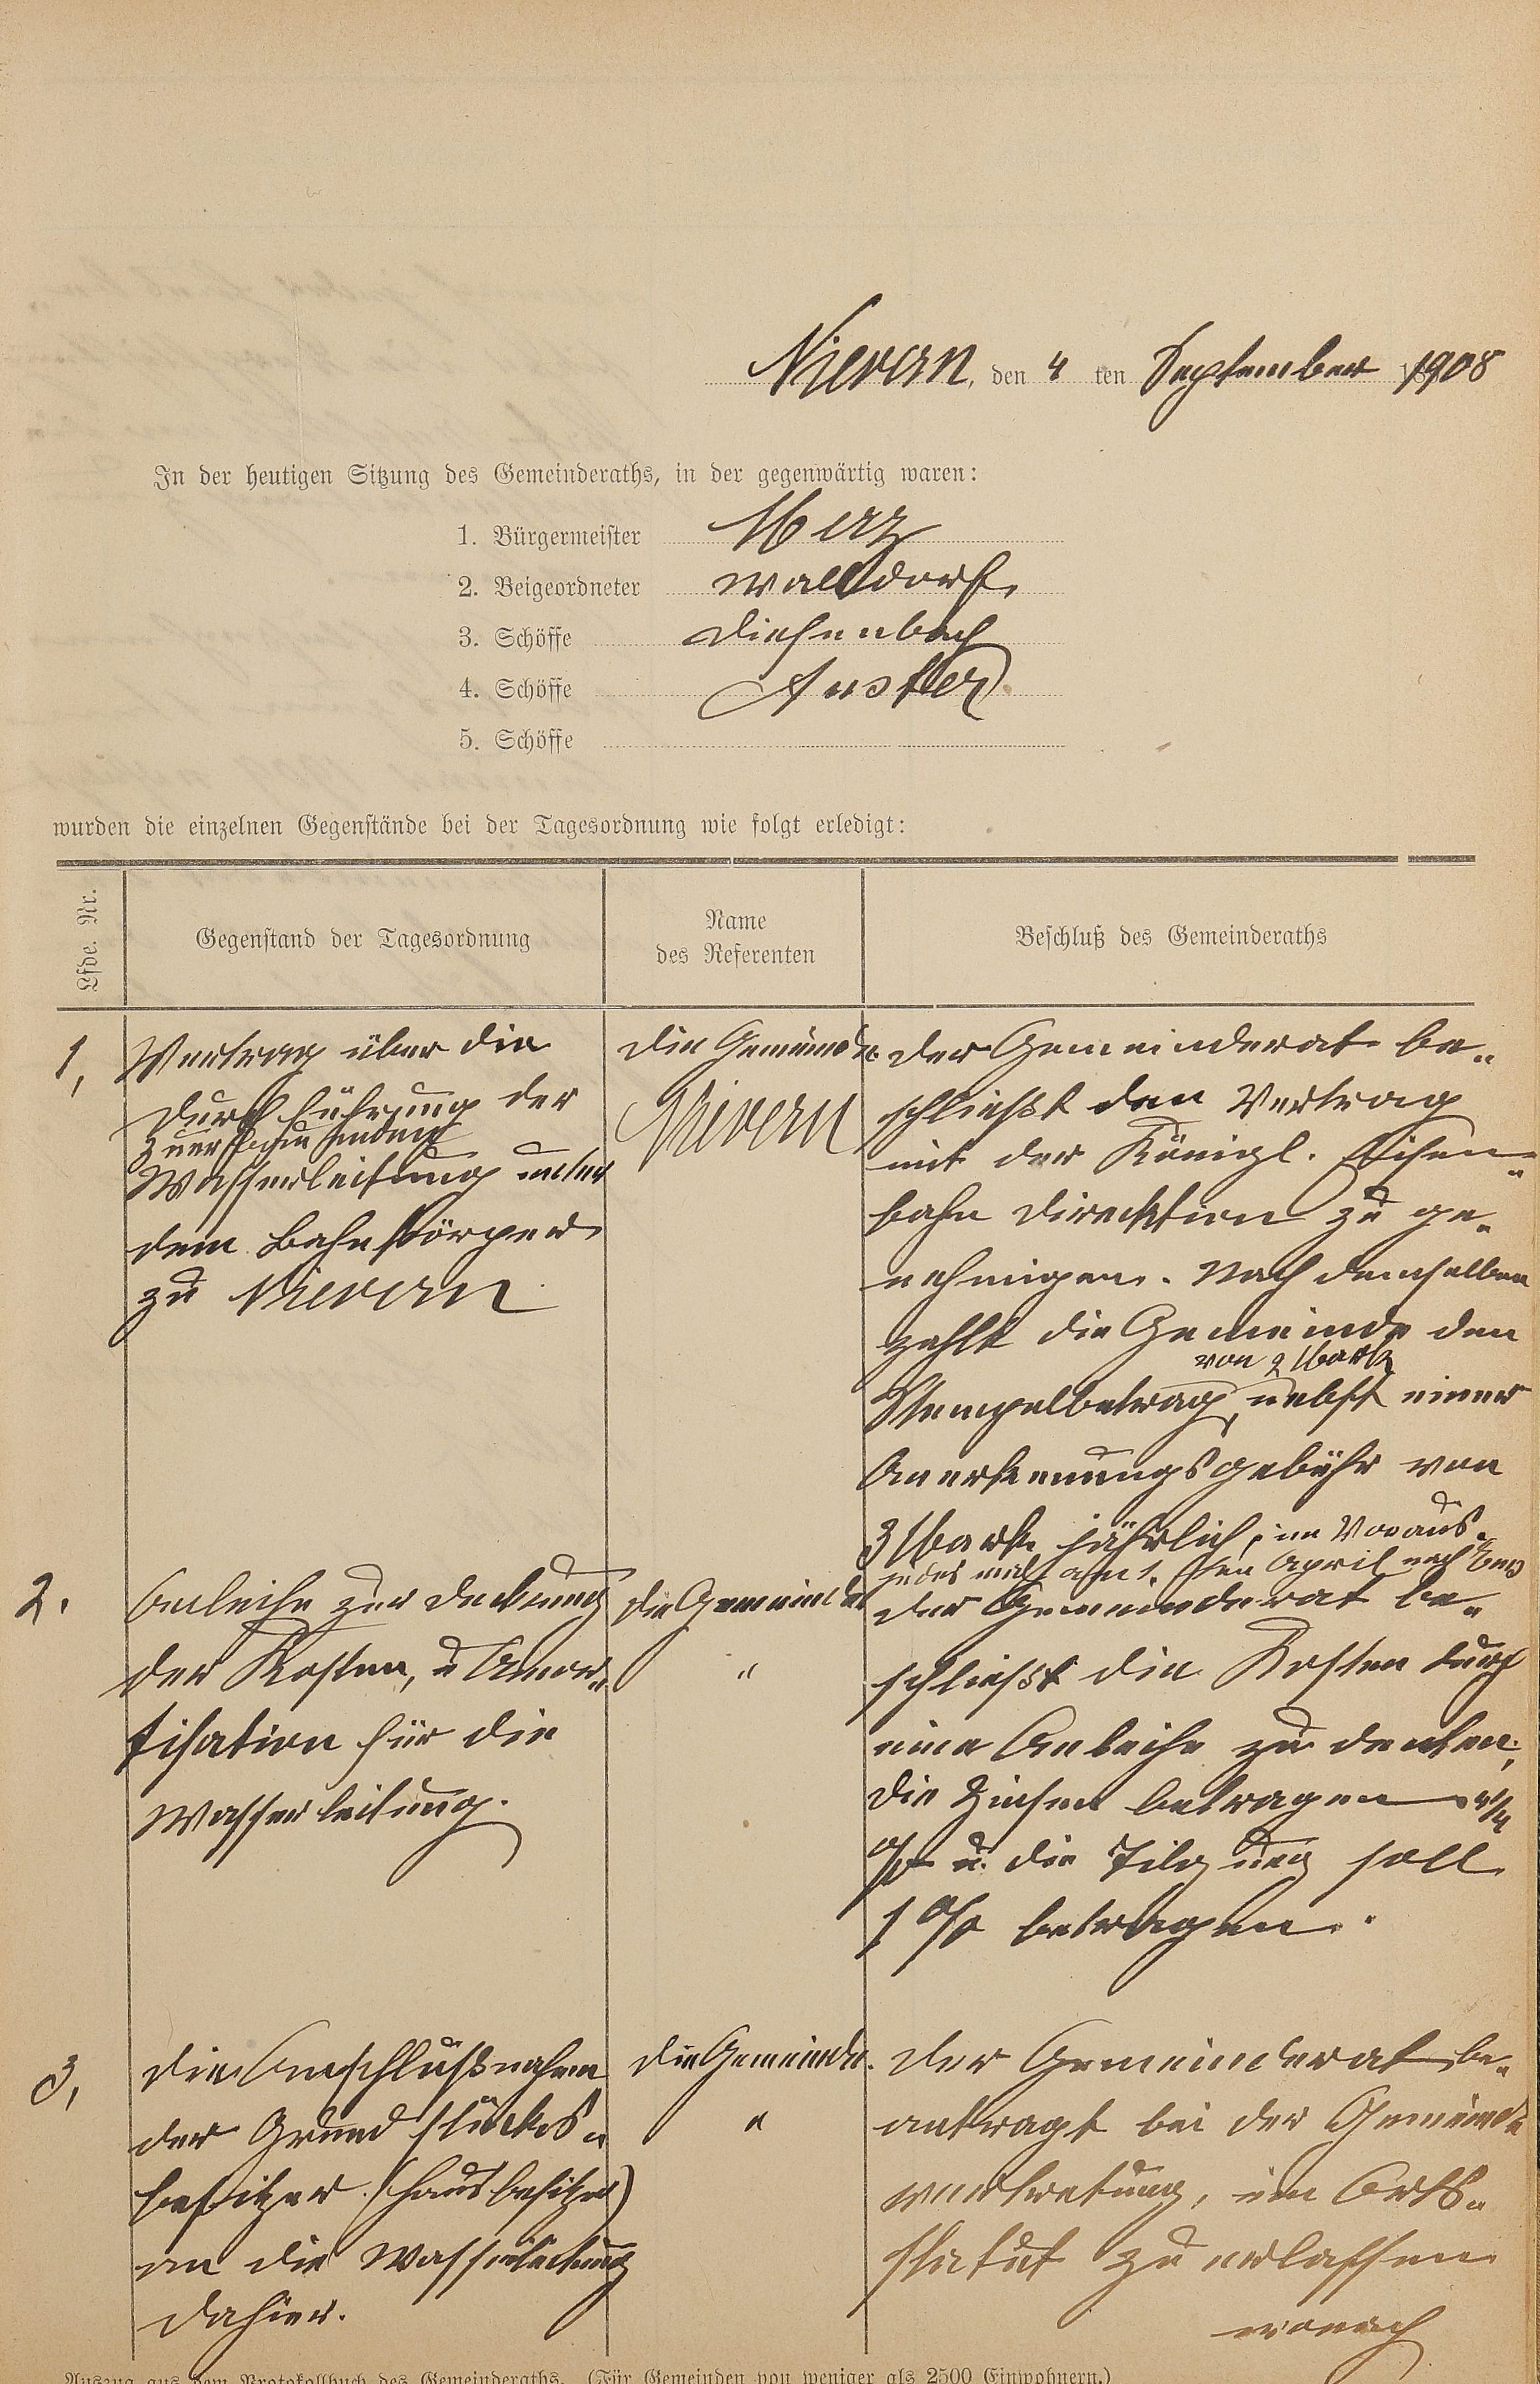 Nievern, den 4 ten September 1908
In der heutigen Sitzung des Gemeinderaths, in der gegenwärtig waren:
1. Bürgermeister Merz
2. Beigeordneter Walldorf,
3. Schöffe Diefenbach
4. Schöffe
5. Schöffe
wurden die einzelnen Gegenstände bei der Tagesordnung wie folgt erledigt:
Lfde. Nr.
Gegenstand der Tagesordnung
Name
des Referenten
Beschluß des Gemeinderaths
1,
Vertrag über die
Durchführung der
zu
Wasserleitung unter
dem Bahnkörper
zu Nievern
Die Gemeinde
Nievern
Der Gemeinderat be„
schließt den Vertrag
mit der Königl. Eisen„
bahn Direcktion zu ge„
nehmigen. Nach demselben
zahlt die Gemeinde den
von 2 Mark
Stempelbetrag, nebst einer
Anerkennungsgebühr von
3 Mark jährlich, im Voraus.
jedes mal am 1. ten April nach Ems
2.
Anleihe zur Deckung
der Kosten, u Amor„
tisation für die
Wasserleitung.
Die Gemeinde
"
Der Gemeinderat be„
schließt die Kosten durch
eine Anleihe zu decken,
die Zinsen betragen 4 1/4
% u. die Tilgung soll
1 % betragen.
3,
Die Anschlußnahme
der Grundstücks„
besitzer (Hausbesitzer)
an die Wasserleitung
dahier.
Die Gemeinde.
"
Der Gemeinderat be„
antragt bei der Gemeinde
vertretung, ein Orts„
statut zu erlassen
wonach
Auszug aus dem Protokollbuch des Gemeinderaths. (Für Gemeinden von weniger als 2500 Einwohnern.)